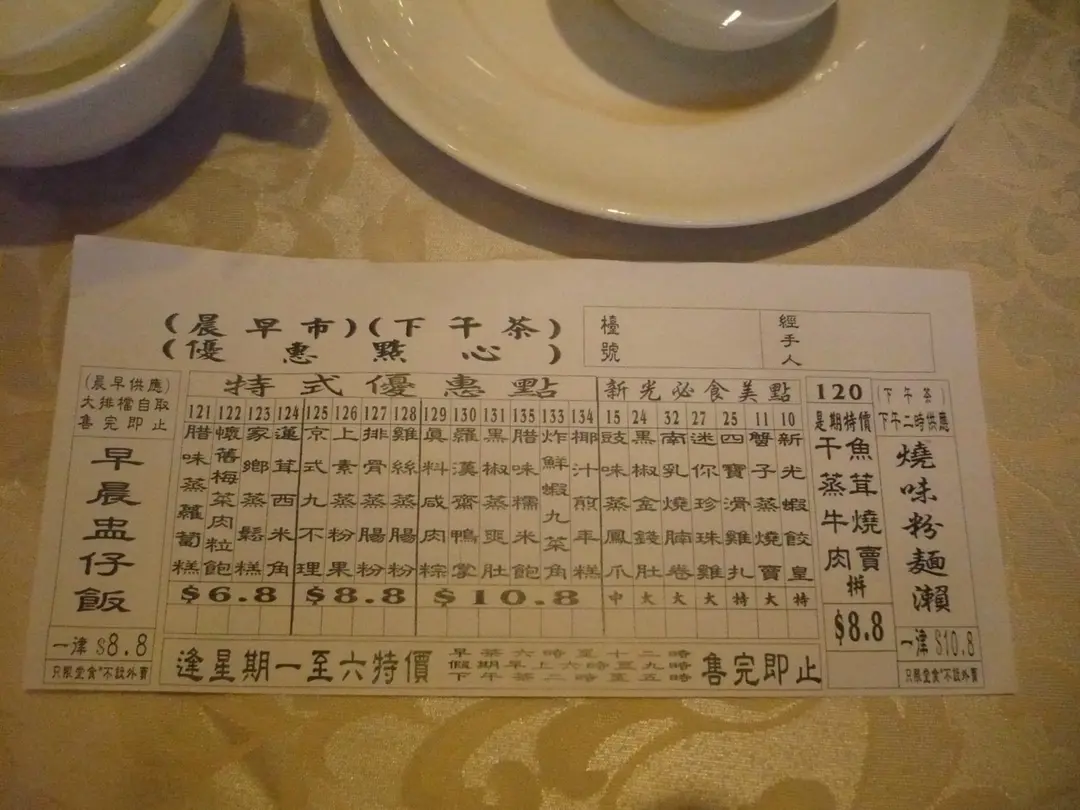 (晨早市)(下午茶)
(優惠點心)
檯號
經手人
(晨早供應)
大排檔自取
售完即止
早晨盅仔飯
一律 $8.8
只限堂食"不設外賣
特式優惠點
121 腊味蒸蘿蔔糕
122 懷舊梅菜肉粒飽
123 家鄉蒸鬆糕
124 蓮茸西米角
$6.8
125 京式九不理
126 上素蒸粉果
127 排骨蒸腸粉
128 雞絲蒸腸粉
$8.8
129 眞料咸肉粽
130 羅漢齋鴨掌
131 黑椒蒸爽肚
135 腊味糯米飽
133 炸鮮蝦九菜角
134 椰汁煎年糕
$10.8
新光必食美點
15 豉味蒸鳳爪 中
24 黑椒金錢肚 大
32 南乳燒腩卷 大
27 迷你珍珠雞 大
25 四寶滑雞扎 特
11 蟹子蒸燒賣 大
10 新光蝦餃皇 特
逢星期一至六特價
早茶六時至十二時
假期早上六時至九時
下午茶二時至五時
售完即止
120
是期特價
魚茸燒賣
干蒸牛肉
拼
$8.8
(下午茶)
下午二時供應
燒味粉麵瀨
一律 $10.8
只限堂食"不設外賣